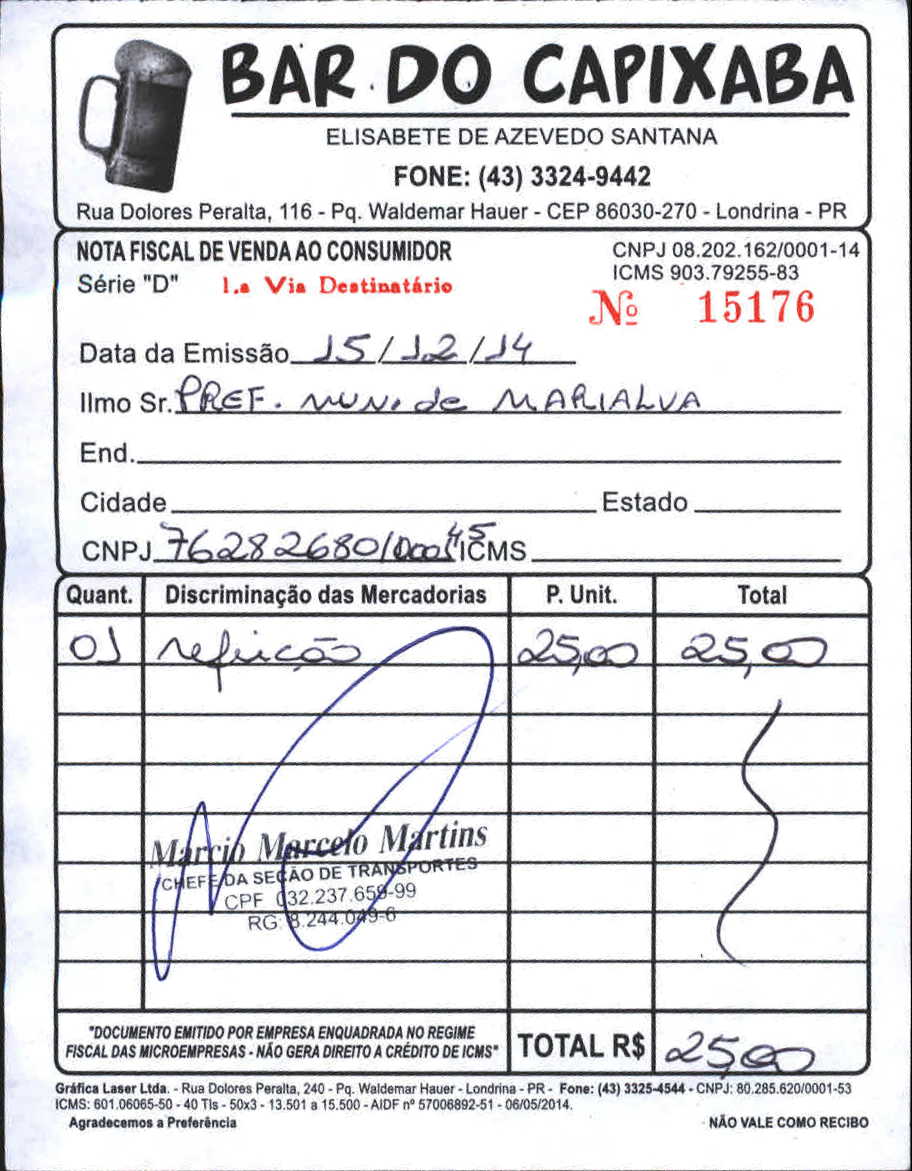 BAR DO CAPIXABA
ELISABETE DE AZEVEDO SANTANA
FONE: (43) 3324-9442
Rua Dolores Peralta, 116 - Pq. Waldemar Hauer - CEP 86030-270 - Londrina - PR
NOTA FISCAL DE VENDA AO CONSUMIDOR
CNPJ 08.202.162/0001-14
Série "D" 1.a Via Destinatário
ICMS 903.79255-83
Nº 15176
Data da Emissão 15/12/14
Ilmo Sr. PREF. MUN. de MARIALVA
End.
Cidade Estado
CNPJ 76282680/0001 45 ICMS
Quant. Discriminação das Mercadorias P. Unit. Total
01 refeição 25,00 25,00
Marcio Marcelo Martins
CHEFE DA SEÇÃO DE TRANSPORTES
CPF 032.237.659-99
RG: 8.244.049-6
"DOCUMENTO EMITIDO POR EMPRESA ENQUADRADA NO REGIME
FISCAL DAS MICROEMPRESAS - NÃO GERA DIREITO A CRÉDITO DE ICMS"
TOTAL R$ 25,00
Gráfica Laser Ltda. - Rua Dolores Peralta, 240 - Pq. Waldemar Hauer - Londrina - PR - Fone: (43) 3325-4544 - CNPJ: 80.285.620/0001-53
ICMS: 601.06065-50 - 40 Tls - 50x3 - 13.501 a 15.500 - AIDF nº 57006892-51 - 06/05/2014.
Agradecemos a Preferência NÃO VALE COMO RECIBO